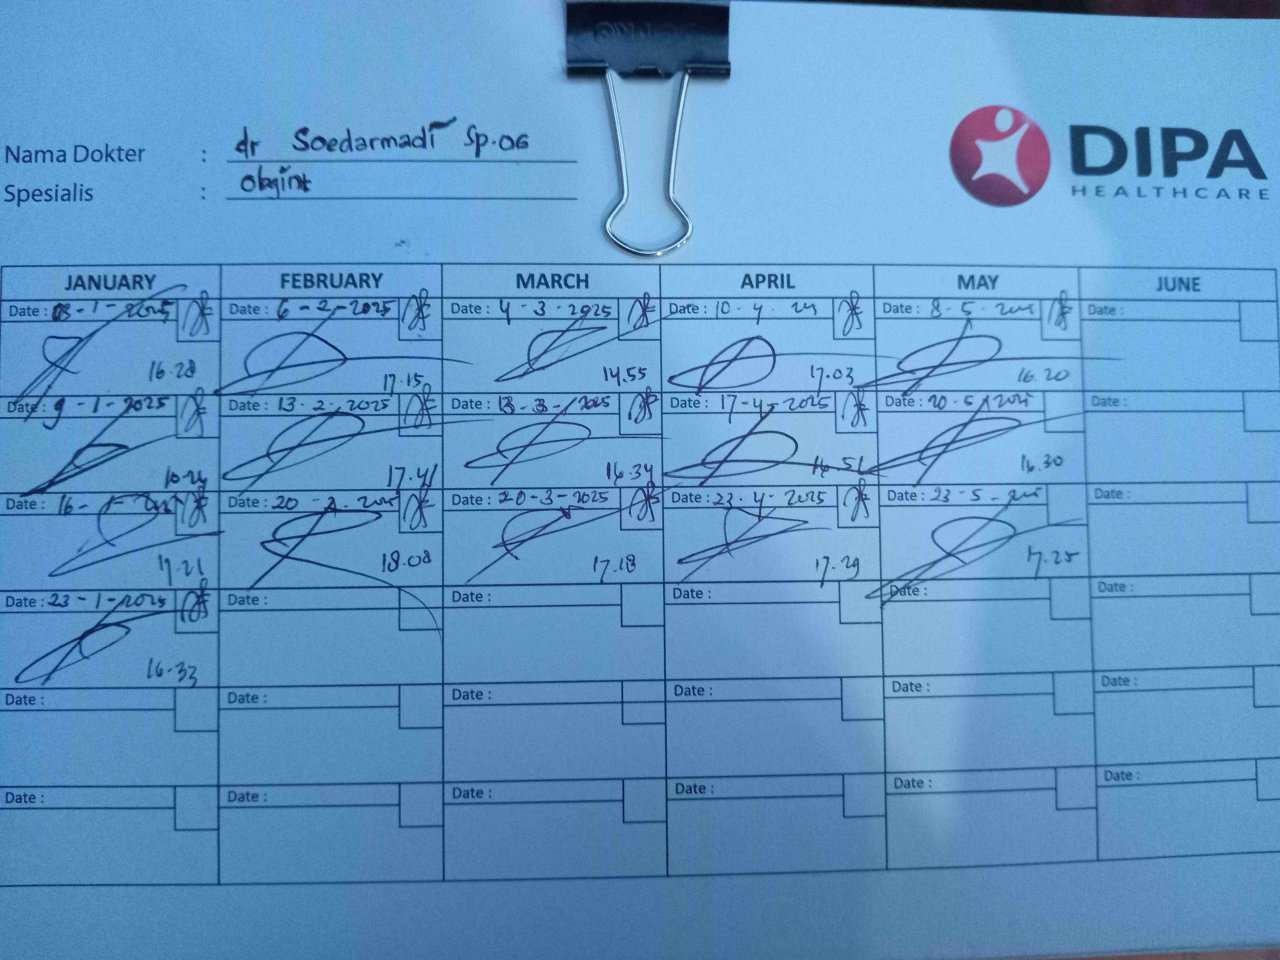 Nama Dokter : dr Soedarmadi Sp.OG
Spesialis : Obgint
DIPA
HEALTHCARE
JANUARY FEBRUARY MARCH APRIL MAY JUNE
Date : 03-1-2025 Date : 6-2-2025 Date : 4-3-2025 Date : 10.4.24 Date : 8.5.2025 Date :
16.28 17.15 14.55 17.03 16.20
Date : 9-1-2025 Date : 13-2-2025 Date : 13-3-2025 Date : 17-4-2025 Date : 20.5.2025 Date :
17.41 16.34 16.51 16.30
Date : 16-1-2025 Date : 20-2-2025 Date : 20-3-2025 Date : 23.4-2025 Date : 23-5-2025 Date :
17.21 18.08 17.18 17.29 17.25
Date : 23-1-2025 Date : Date : Date : Date : Date :
16.33
Date : Date : Date : Date : Date : Date :
Date : Date : Date : Date : Date : Date :